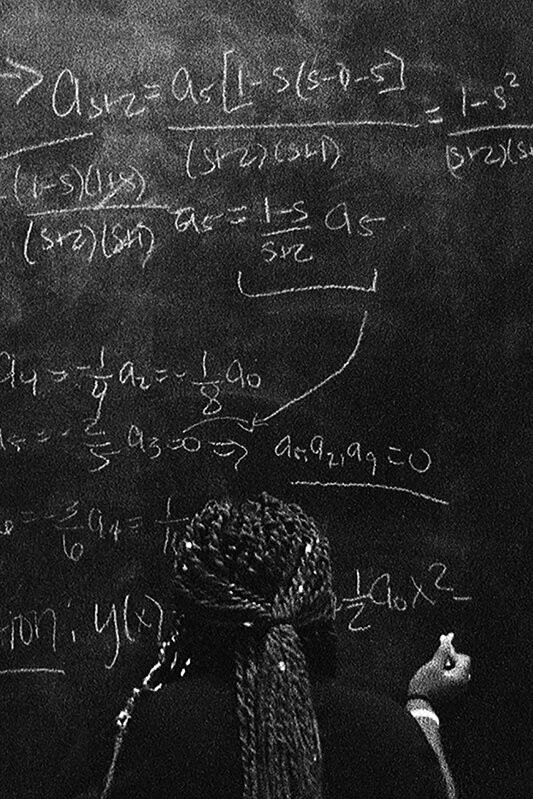 → a_{s+2} = a_s [1-s(s-1)-s] / (s+2)(s+1) = 1-s² / (s+2)(s+
(1-s)(1+s) / (s+2)(s+1) a_s = 1-s / s+2 a_s
a₄ = -1/4 a₂ = -1/8 a₀
= - /5 a₃ = 0 ⇒ =0
= -3/6 a₄ = 1/
tion: y(x) 1/2 a₀x² -